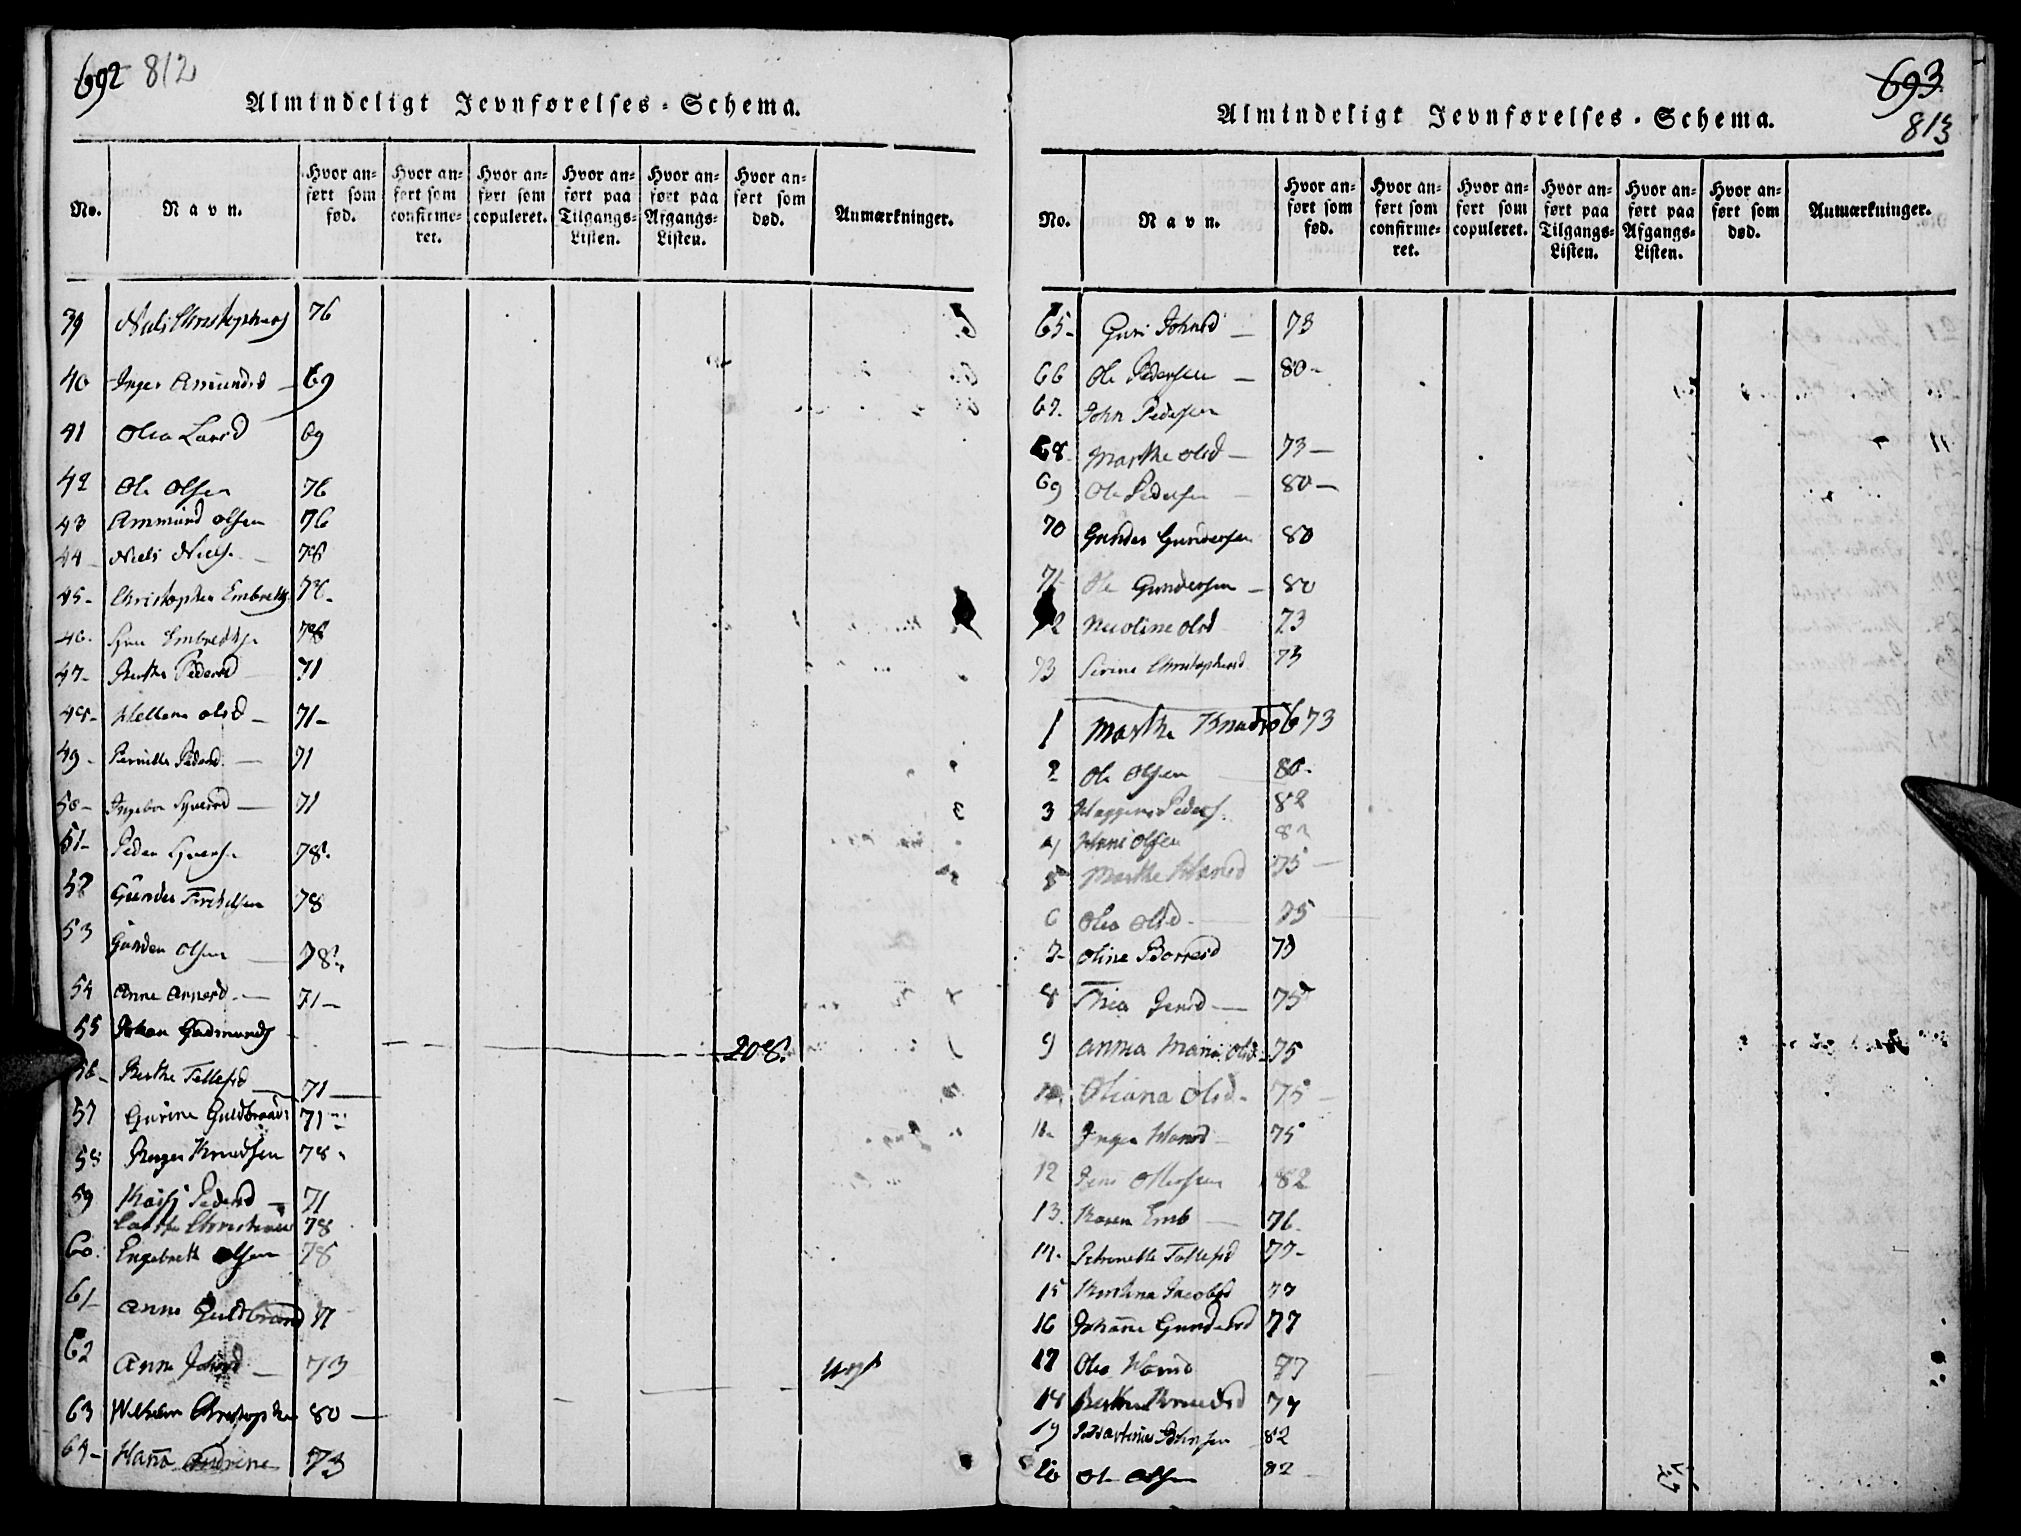 692 812
Almindeligt Jevnførelses-Schema.
No.
Navn.
Hvor anført som fød.
Hvor anført som confirmeret.
Hvor anført som copuleret.
Hvor anført paa Tilgangs-Listen.
Hvor anført paa Afgangs-Listen.
Hvor anført som død.
Anmærkninger.
39 Niels Christophers 76
40 Inger Amundsd 69
41 Olea Larsd 69
42 Ole Olsen 76
43 Ammund Olsen 76
44 Niels Niels. 78
45- Christopher Embrets. 78.
46. Embredts. 78
47- Berthe Pedersd 71
48- Hellene Olsd - 71-
49- Pernille Pedersd. — 71
50- Ingebor Syversd — 71
51- Peder Syvers. 78.
52 Gunder 78
53 Gunder Olsen — 78.
54 Anne Arnesd. — 71-
55 Johan Gudmunds - 208.
56- Berthe Tollefsd 71
57 Gurine Guldbrands 71
58 Knudsen 78.
59 Pedersd - 71
Christians 78
60. Engebrett Olsen 78
61- Anne Guldbrand 71
62 Anne 73
63 Wilhelm Christophe 80 -
64- Hanna Andrine 73
693
813
Almindeligt Jevnførelses-Schema.
No.
Navn.
Hvor anført som fød.
Hvor anført som confirmeret.
Hvor anført som copuleret.
Hvor anført paa Tilgangs-Listen.
Hvor anført paa Afgangs-Listen.
Hvor anført som død.
Anmærkninger.
65- Guri Johnsd — 73
66 Ole Pedersen - 80-
67. John Pedersen
68 Marthe Olsd - 73 -
69 Ole Pedersen - 80 -
70 Gunder Gundersen 80
71- Ole Gundersen - 80
2 Nicoline Olsd 73
73 Sirine Christophersd 73
1 Marthe Knuds 673
2 Ole Olsen 80.
3 Peders. 82
4 Hans Olsen 82
5 Marthe Hansd 75 -
6 Olea Olsd. 75
7- Oline Borresd 75
8 Thea Jensd — 75
9 Anna Maria Olsd. 75
10. Oliana Olsd- 75 -
11- Inger Hansd 75
12 Jens 82
13. Karen Emb — 76.
14. Petronelle Tollefsd 77-
15 Jacobsd 77
16 Johanne Gundersd 77
17 Olea Hansd 77
18 Berthe Knudsd 77
19 Martinus Johnsen 82
20 Ole Olsen 82